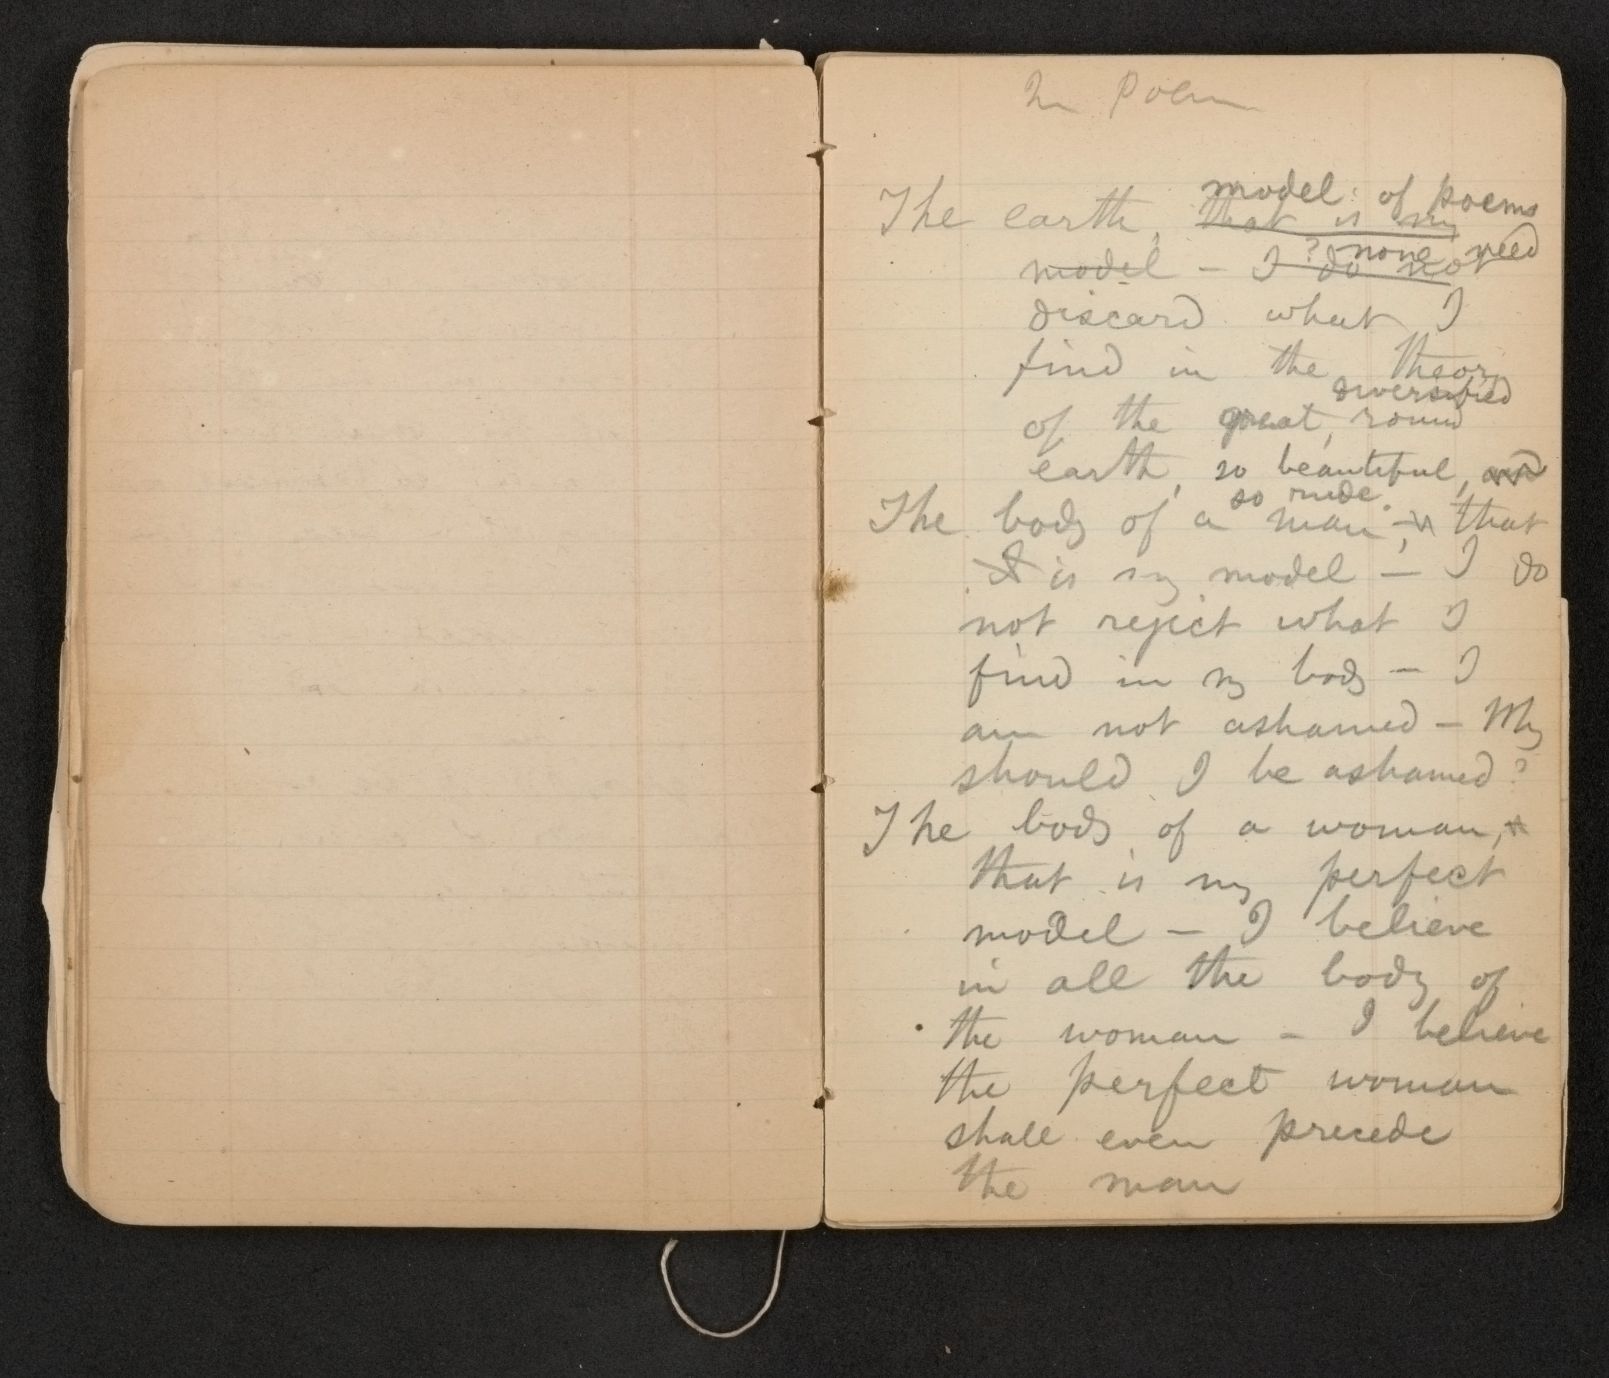 In Poem
model of poems
The earth, that is my
? none need
model – I do not
discard what I
find in the theory
diversified
of the great, round
earth, so beautiful, and
so rude.
The body of a man, – that
is my model – I do
not reject what I
find in my body – I
am not ashamed – Why
should I be ashamed?
The body of a woman,
that is my perfect
model – I believe
in all the body of
the woman – I believe
the perfect woman
shall even precede
the man